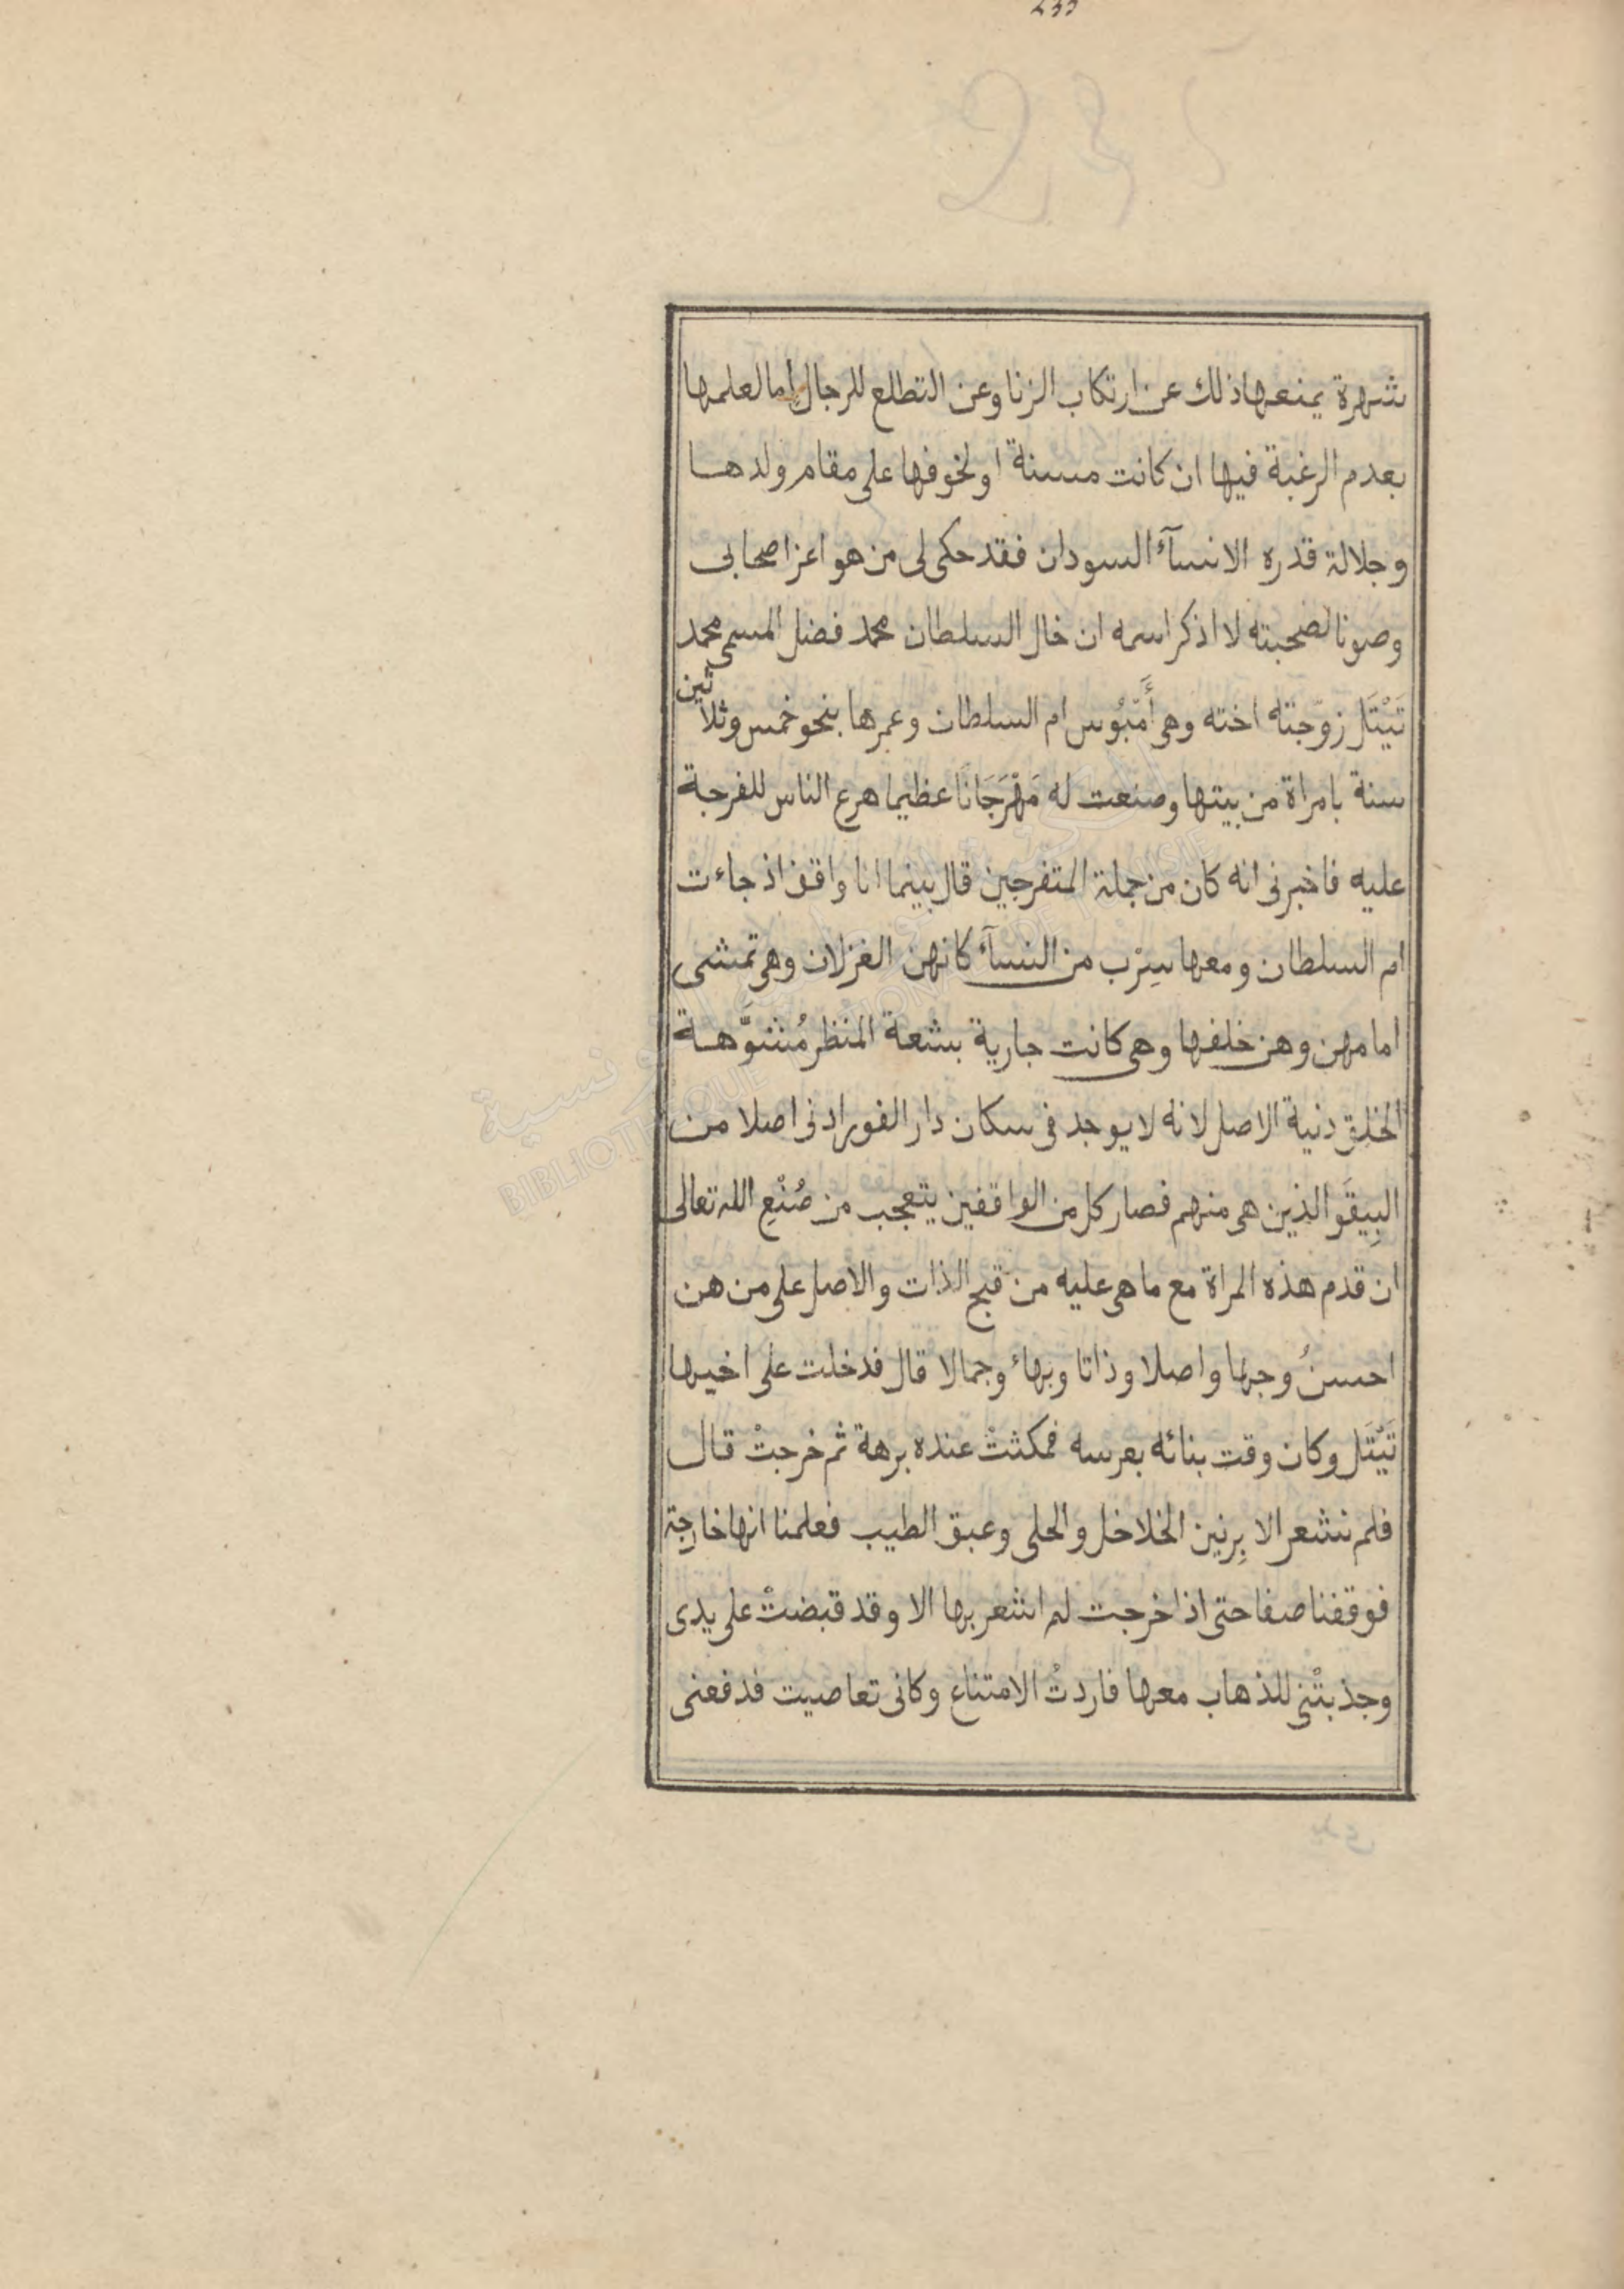 235
شهرة يمنعها ذلك عن ارتكاب الزنا وعن التطلع للرجال اما لعلمها
بعدم الرغبة فيها ان كانت مسنة او لخوفها على مقام ولدها
وجلالة قدره الا نسآء السودان فقد حكى لى من هو اعز اصحابى
وصونا لصحبته لا اذكر اسمه ان خال السلطان محمد فضل المسمى محمد
تَيْتَل زوّجته اخته وهى أَمّبُوس ام السلطان وعمرها بنحو خمس وثلاثين
سنة بامراة من بيتها وصنعت له مَهْرَجَانًا عظيما هرع الناس للفرجة
عليه فاخبرنى انه كان من جملة المتفرجين قال بينما انا واقف اذ جاءت
ام السلطان ومعها سِرْب من النسآء كانهن الغزلان وهى تمشى
امامهن وهن خلفها وهى كانت جارية بشعة المنظر مُشَوَّهة
الخلق دنية الاصل لانه لا يوجد فى سكان دار الفور ادنى اصلا من
البِيقَو الذين هى منهم فصار كل من الواقفين يتعجب من صُنْعِ الله تعالى
ان قدم هذه المراة مع ما هى عليه من قبح الذات والاصل على من هن
احسنُ وجها واصلا وذاتا وبهاء وجمالا قال فدخلت على اخيها
تَيْتَل وكان وقت بنائه بعرسه فمكثتْ عنده برهة ثم خرجتْ قال
فلم نشعر الا بِرنين الخلاخل والحلى وعبق الطيب فعلمنا انها خارجة
فوقفنا صفا حتى اذا خرجت لم اشعر بها الا وقد قبضتْ على يدى
وجذبتْنى للذهاب معها فاردتُ الامتناع وكانى تعاصيت فدفعنى
BIBLIOTHEQUE NATIONALE DE TUNISIE